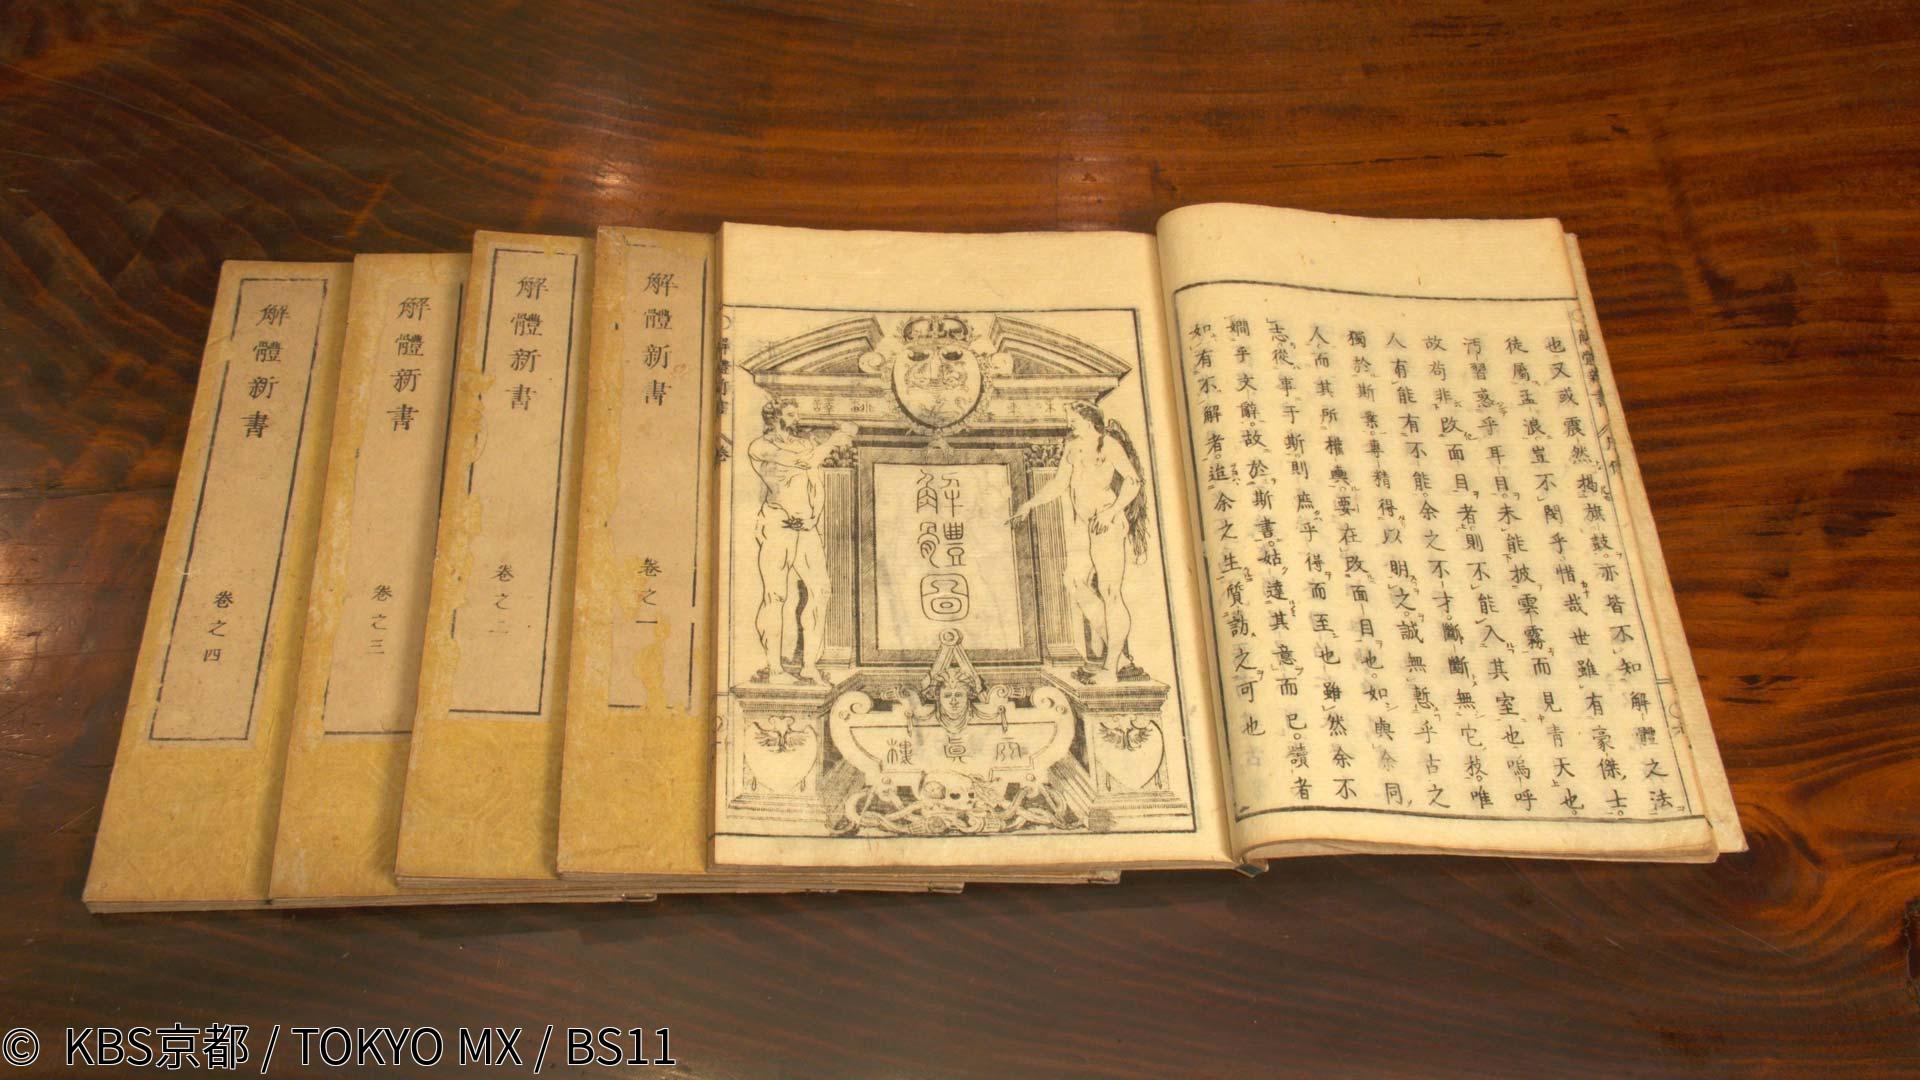 也又或震然揭旗鼓。亦皆不知解體之法
徒屬孟浪豈不閔乎。惜哉世雖有豪傑士。
汚習惑乎耳目。未能披雲霧而見青天也。
故苟非改面目者。則不能入其室也嗚呼
人有能有不能。余之不才。斷斷無它技。唯
獨於斯業。專精得以明之。誠無慙乎古之
人而其所權輿。要在改面目也。如與余同
志。從事于斯則庶乎得而至也雖然余不
嫺乎文辭。故於斯書。姑達其意而已。讀者
如有不解者。迨余之生質訪之可也
解體圖
天眞樓
解體新書
卷之一
解體新書
卷之二
解體新書
卷之三
解體新書
卷之四
© KBS京都 / TOKYO MX / BS11